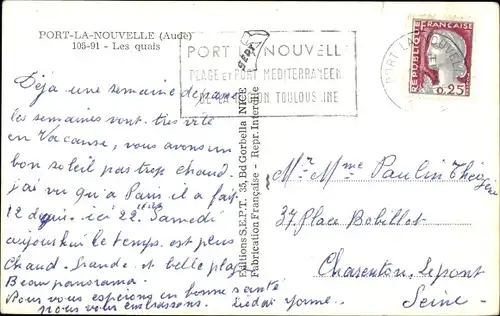 PORT-LA-NOUVELLE (Aude)
105-91 - Les quais
Déjà une semaine de passé
les semaines vont très vite
en Vacance, nous avons un
bon soleil pas trop chaud.
j'ai vu qu'a Paris il a fait
12 degrés ici 22. Samedi
aujourhui le temps est plus
Chaud - Grande et belle plage
Beau panorama.
Nous vous esperons en bonne santé
nous vous embrassons.
Yvonne
Editions S.E.P.T. 35, Bd Gorbella NICE
Fabrication Française - Repr. Interdite
SEPT
PORT LA NOUVELLE
PLAGE et PORT MEDITERRANEEN
DE LA REGION TOULOUSAINE
PORT LA NOUVELLE
REPUBLIQUE FRANÇAISE
0,25
Mr Mme Paulin
37 Place Bobillot
Charenton-Lepont
Seine-